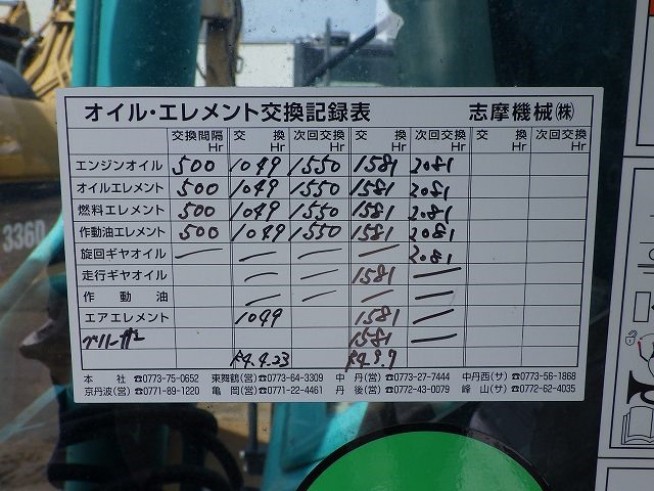 オイル・エレメント交換記録表 志摩機械㈱
交換間隔Hr 交換Hr 次回交換Hr 交換Hr 次回交換Hr 交換Hr 次回交換Hr
エンジンオイル 500 1049 1550 1581 2081
オイルエレメント 500 1049 1550 1581 2081
燃料エレメント 500 1049 1550 1581 2081
作動油エレメント 500 1049 1550 1581 2081
旋回ギヤオイル — — — — 2081
走行ギヤオイル — — 1581 —
作動油 — — — —
エアエレメント 1049 1581 —
1581 —
R4.4.23 R4.9.9
本社☎0773-75-0652 東舞鶴(営)☎0773-64-3309 中丹(営)☎0773-27-7444 中丹西(サ)☎0773-56-1868
京丹波(営)☎0771-89-1220 亀岡(営)☎0771-22-4461 丹後(営)☎0772-43-0079 峰山(サ)☎0772-62-4035
336D